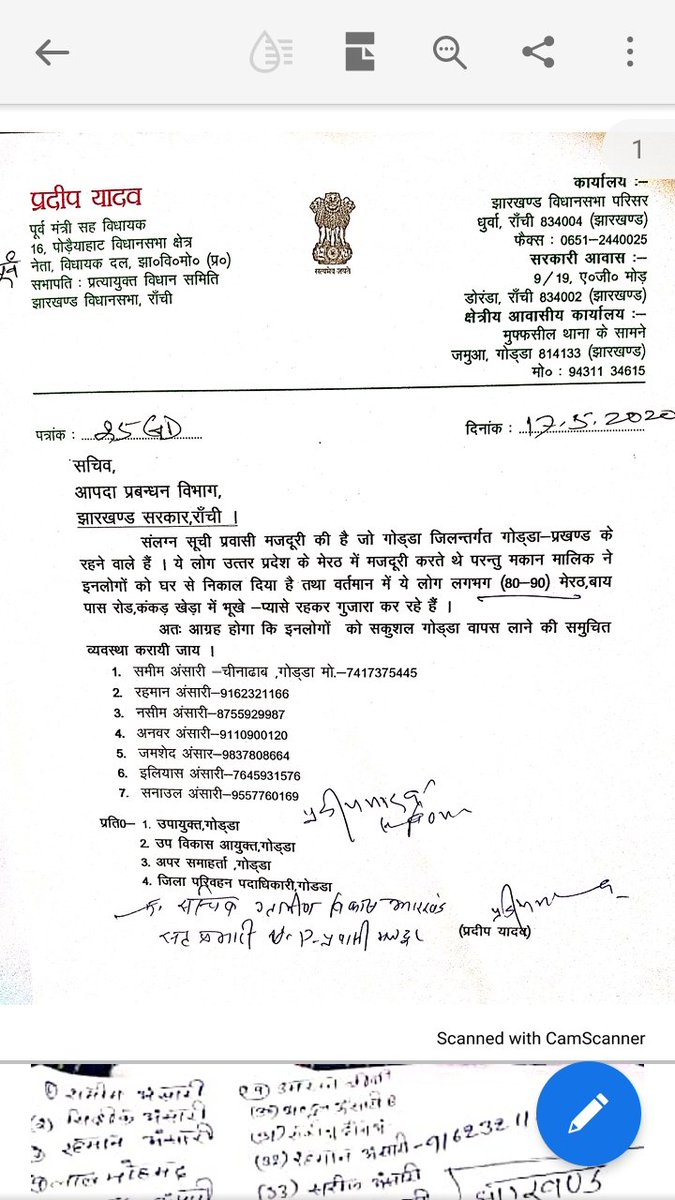 1
प्रदीप यादव
पूर्व मंत्री सह विधायक
16, पोड़ैयाहाट विधानसभा क्षेत्र
नेता, विधायक दल, झा०वि०मो० (प्र०)
सभापति : प्रत्यायुक्त विधान समिति
झारखण्ड विधानसभा, राँची
सत्यमेव जयते
कार्यालय :–
झारखण्ड विधानसभा परिसर
धुर्वा, राँची 834004 (झारखण्ड)
फैक्स : 0651–2440025
सरकारी आवास :–
9/19, ए०जी० मोड़
डोरंडा, राँची 834002 (झारखण्ड)
क्षेत्रीय आवासीय कार्यालय :–
मुफ्फसील थाना के सामने
जमुआ, गोड्डा 814133 (झारखण्ड)
मो० : 94311 34615
पत्रांक : 25 GD
दिनांक : 17.5.2020
सचिव,
आपदा प्रबन्धन विभाग,
झारखण्ड सरकार,राँची ।
संलग्न सूची प्रवासी मजदूरी की है जो गोड्डा जिलन्तर्गत गोड्डा–प्रखण्ड के
रहने वाले हैं । ये लोग उत्तर प्रदेश के मेरठ में मजदूरी करते थे परन्तु मकान मालिक ने
इनलोगों को घर से निकाल दिया है तथा वर्तमान में ये लोग लगभग (80–90) मेरठ,बाय
पास रोड,कंकड़ खेड़ा में भूखे –प्यासे रहकर गुजारा कर रहे हैं ।
अतः आग्रह होगा कि इनलोगों को सकुशल गोड्डा वापस लाने की समुचित
व्यवस्था करायी जाय ।
1. समीम अंसारी –चीनाढाब ,गोड्डा मो.–7417375445
2. रहमान अंसारी–9162321166
3. नसीम अंसारी–8755929987
4. अनवर अंसारी–9110900120
5. जमशेद अंसार–9837808664
6. इलियास अंसारी–7645931576
7. सनाउल अंसारी–9557760169
प्रति०– 1. उपायुक्त,गोड्डा
2. उप विकास आयुक्त,गोड्डा
3. अपर समाहर्ता ,गोड्डा
4. जिला परिवहन पदाधिकारी,गोडडा
सचिव ग्रामीण विकास झारखंड
(प्रदीप यादव)
Scanned with CamScanner
समीम अंसारी
(2) अंसारी
रहमान अंसारी
लाल मोहम्मद
अंसारी
(32) रहमान अंसारी-9162321
(33) अंसारी
झारखण्ड